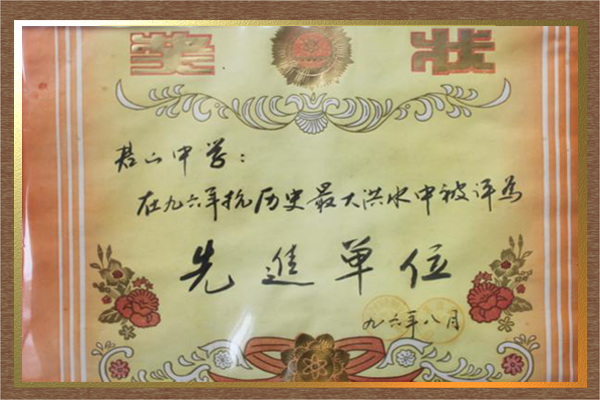 奖 状
君山中学：
在九六年抗历史最大洪水中被评为
先進单位
九六年八月